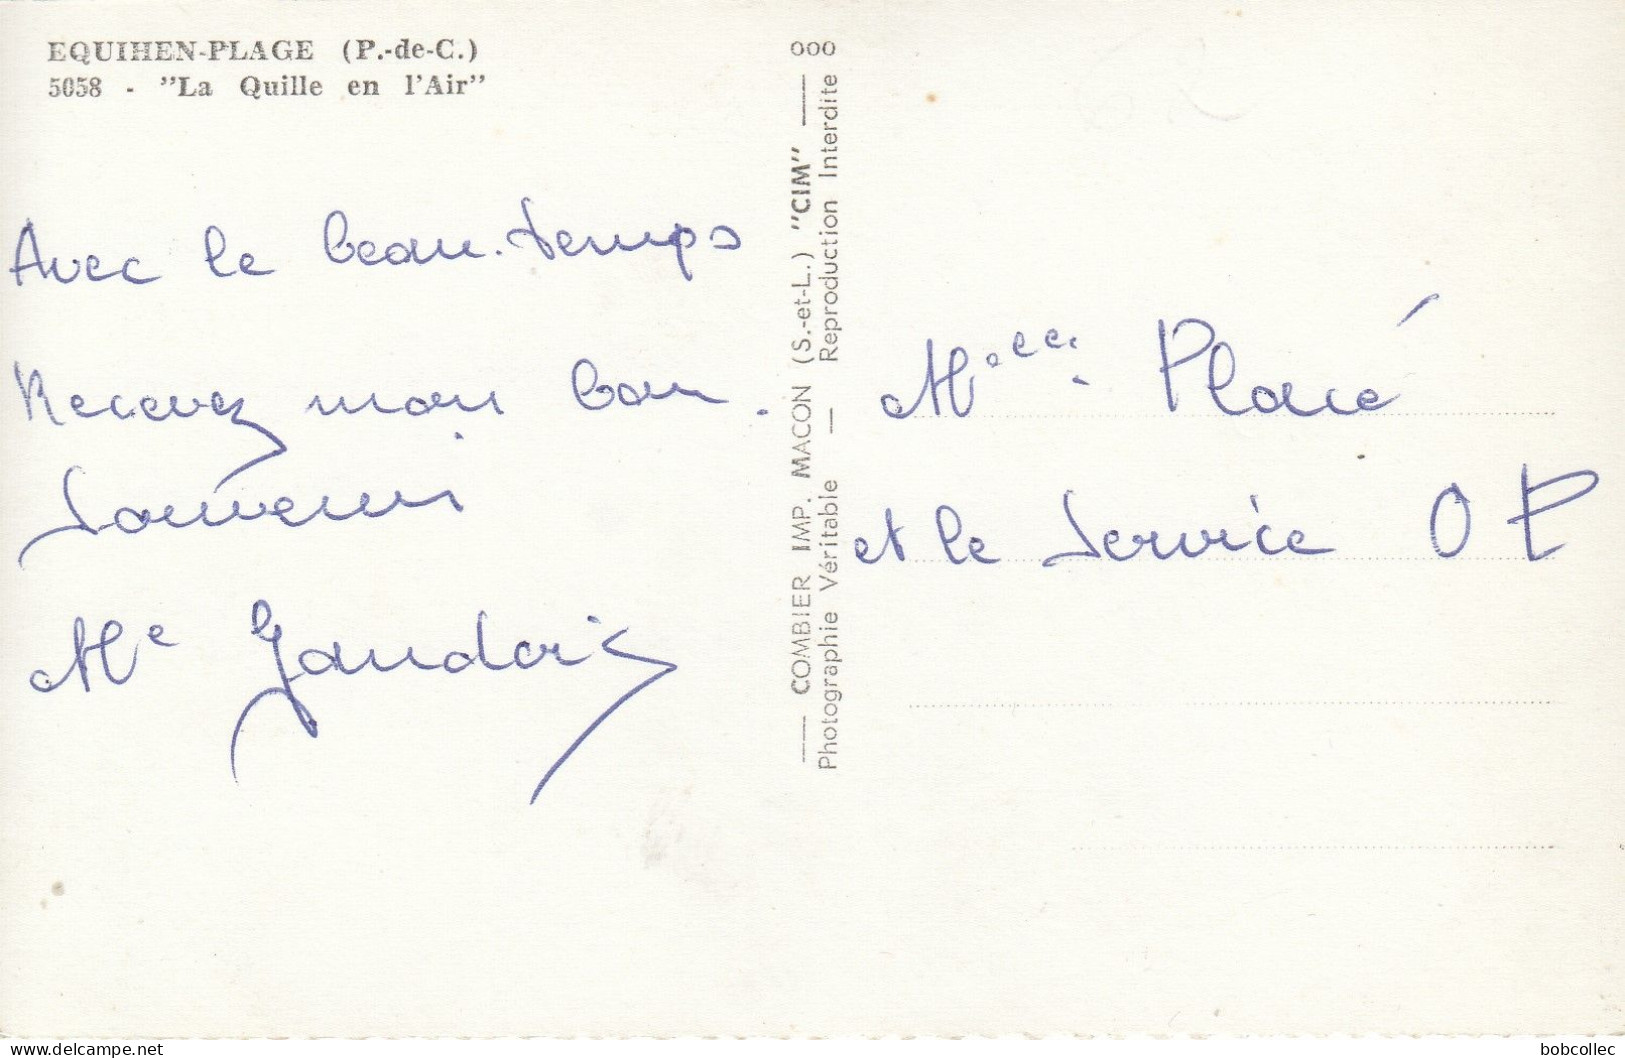 EQUIHEN-PLAGE (P.-de-C.)
5058 - "La Quille en l'Air"
Avec le beau temps
Recevez mon bon
Souvenir
Me Gaudoin
COMBIER IMP. MACON (S.-et-L.) "CIM"
Photographie Véritable — Reproduction Interdite
ooo
Melle Placé
et le Service O P
bobcollec